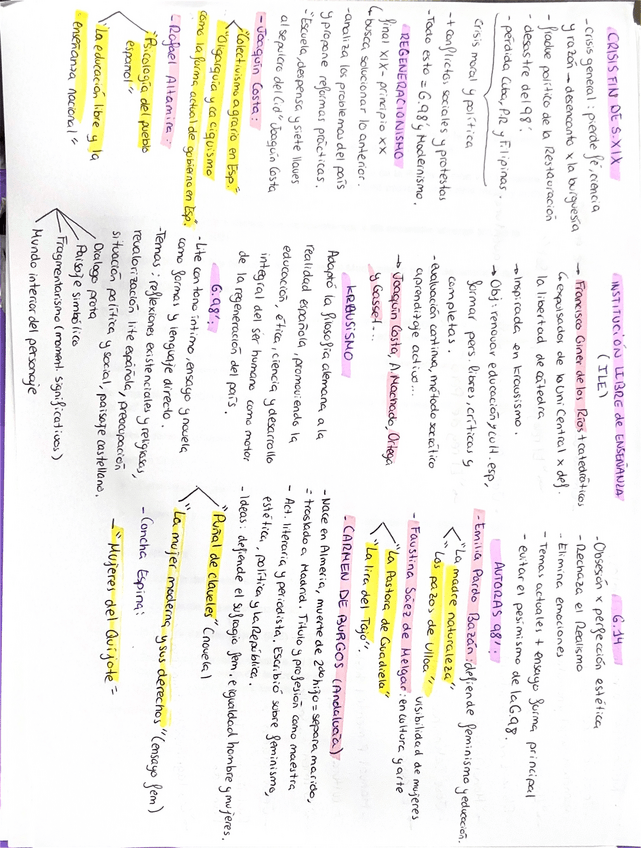 CRISIS FIN DE S.XIX
- crisis general: pierde fe, ciencia
y razón → desencanto x la burguesía
- fraude político de la Restauración
- desastre del 98'.
- pérdida Cuba, P.R y Filipinas.
crisis moral y política
- + conflictos sociales y protestas
- Todo esto = G.98' y Modernismo.
REGENERACIONISMO
final XIX - principio XX
↳ busca solucionar lo anterior.
- analiza los problemas del país
y propone reformas prácticas.
- "Escuela, despensa y siete llaves
al sepulcro del Cid" Joaquín Costa
- Joaquín Costa:
"Colectivismo agrario en Esp."
"Oligarquía y caciquismo
como la forma actual de gobierno en Esp."
- Rafael Altamira:
"Psicología del pueblo
español"
"La educación libre y la
enseñanza nacional"
INSTITUCIÓN LIBRE de ENSEÑANZA
(ILE)
→ Francisco Giner de los Ríos + catedráticos
↳ expulsados de la Uni Central x def.
la libertad de cátedra
→ Inspirada en krausismo.
→ Obj: renovar educación y cult. esp,
formar pers. libres, críticas y
completas.
- evaluación continua, método socrático
aprendizaje activo...
→ Joaquín Costa, A. Machado, Ortega
y Gasset...
KRAUSISMO
Adaptó la filosofía alemana a la
realidad española, promoviendo la
educación, ética, ciencia y desarrollo
integral del ser humano como motor
de la regeneración del país.
G.98':
- Lite con tono íntimo, ensayo y novela
como formas y lenguaje directo.
- Temas: reflexiones existenciales y religiosas,
revalorización lite española, preocupación
situación política y social, paisaje castellano.
Diálogo prota
Paisaje simbólico
Fragmentarismo (moment. significativos)
Mundo interior del personaje
G.14
- Obsesión x perfección estética
- Rechaza el Realismo
- Elimina emociones
- Temas actuales + ensayo forma principal
- evitar el pesimismo de la G.98.
AUTORAS 98':
- Emilia Pardo Bazán: defiende feminismo y educación.
"La madre naturaleza"
"Los pazos de Ulloa"
visibilidad de mujeres
- Faustina Sáez de Melgar: en cultura y arte
"La Pastora de Guadiela"
"La lira del Tajo".
- CARMEN DE BURGOS (Andalucía)
- Nace en Almería, muerte de 2do hijo = separa marido,
= traslado a Madrid. Título y profesión como maestra
- Act. literaria y periodista. Escribió sobre feminismo,
estética, política y la República.
- Ideas: defiende el sufragio fem. e igualdad hombre y mujeres.
"Puñal de claveles" (novela)
"La mujer moderna y sus derechos" (ensayo fem)
- Concha Espina:
- "Mujeres del Quijote"